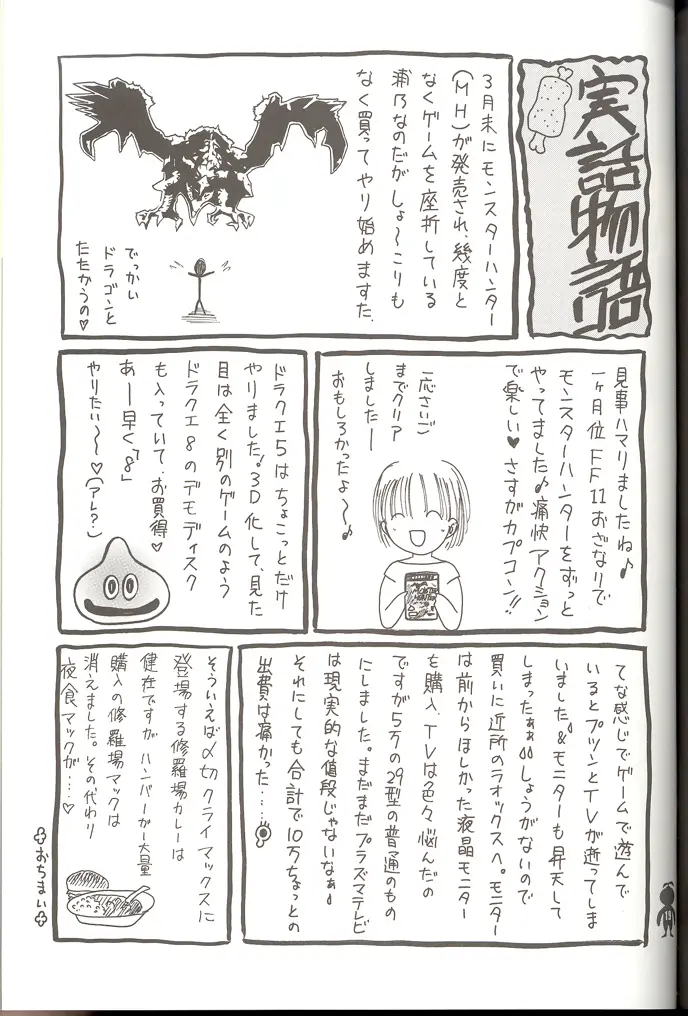 実話物語
3月末にモンスターハンター
(MH)が発売され、幾度と
なくゲームを座折している
浦乃なのだがしょ〜こりも
なく買ってやり始めますた.
でっかい
ドラゴンと
たたかうの♡
見事ハマりましたね♪
一ヶ月位FF11おざなりで
モンスターハンターをずっと
やってました♪痛快アクション
で楽しい♥さすがカプコン!!
一応さいご
までクリア
しましたー
おもしろかったよ〜♪
MONSTER HUNTER
ドラクエ5はちょこっとだけ
やりました!3D化して、見た
目は全く別のゲームのよう
ドラクエ8のデモディスク
も入っていて、お買得♡
あー早く「8」
やりたい〜♡(アレ?)
てな感じでゲームで遊んで
いるとプツンとTVが逝ってしま
いました。&モニターも昇天して
しまったぁぁ しょうがないので
買いに近所のラオックスへ。モニター
は前からほしかった液晶モニター
を購入、TVは色々悩んだの
ですが5万の29型の普通のもの
にしました。まだまだプラズマテレビ
は現実的な値段じゃないなぁ
それにしても合計で10万ちょっとの
出費は痛かった……
そういえば〆切クライマックスに
登場する修羅場カレーは
健在ですがハンバーガー大量
購入の修羅場マックは
消えました。その代わり
夜食マックが……♡
おちまい
19